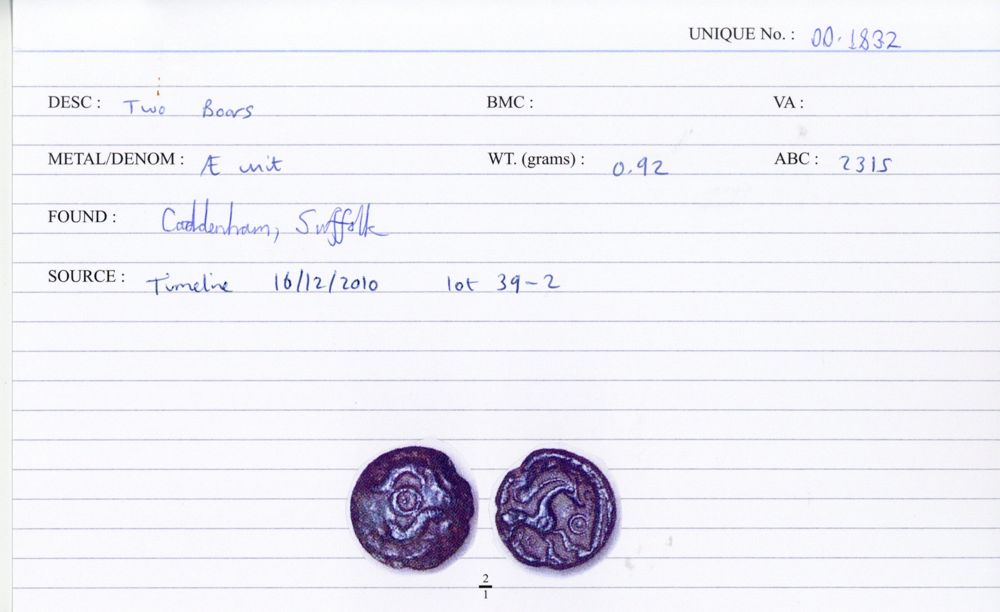 UNIQUE No. : 00.1832
DESC : Two Boars BMC : VA :
METAL/DENOM : Æ unit WT. (grams) : 0.92 ABC : 2315
FOUND : Coddenham, Suffolk
SOURCE : Timeline 16/12/2010 lot 39-2
2
1